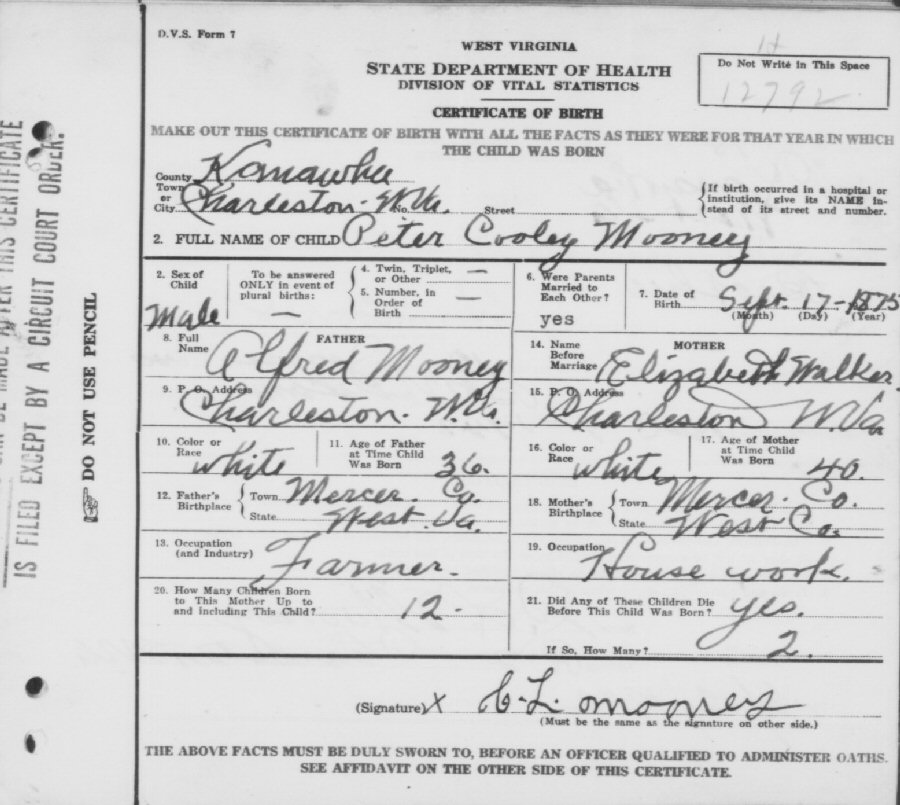 D.V.S. Form 7
WEST VIRGINIA
STATE DEPARTMENT OF HEALTH
DIVISION OF VITAL STATISTICS
CERTIFICATE OF BIRTH
Do Not Write in This Space
12792
MAKE OUT THIS CERTIFICATE OF BIRTH WITH ALL THE FACTS AS THEY WERE FOR THAT YEAR IN WHICH
THE CHILD WAS BORN
County Kanawha
Town or City Charleston- W.Va. No. Street
If birth occurred in a hospital or
institution, give its NAME in-
stead of its street and number.
2. FULL NAME OF CHILD Peter Cooley Mooney
2. Sex of Child Male
To be answered
ONLY in event of
plural births: —
4. Twin, Triplet, or Other —
5. Number, in Order of Birth —
6. Were Parents Married to Each Other? yes
7. Date of Birth Sept. 17-1875
(Month) (Day) (Year)
FATHER
8. Full Name Alfred Mooney
9. P. O. Address Charleston- W.Va.
10. Color or Race white
11. Age of Father at Time Child Was Born 36.
12. Father's Birthplace Town Mercer. Co.
State West. Va.
13. Occupation (and Industry) Farmer.
MOTHER
14. Name Before Marriage Elizabeth Walker.
15. P. O. Address Charleston W.Va
16. Color or Race white
17. Age of Mother at Time Child Was Born 40.
18. Mother's Birthplace Town Mercer. Co.
State West Co.
19. Occupation House work.
20. How Many Children Born
to This Mother Up to
and Including This Child? 12-
21. Did Any of These Children Die
Before This Child Was Born? yes.
If So, How Many? 2.
(Signature) X C.L. Mooney
(Must be the same as the signature on other side.)
THE ABOVE FACTS MUST BE DULY SWORN TO, BEFORE AN OFFICER QUALIFIED TO ADMINISTER OATHS.
SEE AFFIDAVIT ON THE OTHER SIDE OF THIS CERTIFICATE.
DO NOT USE PENCIL
CAN BE MADE AFTER THIS CERTIFICATE
IS FILED EXCEPT BY A CIRCUIT COURT ORDER.